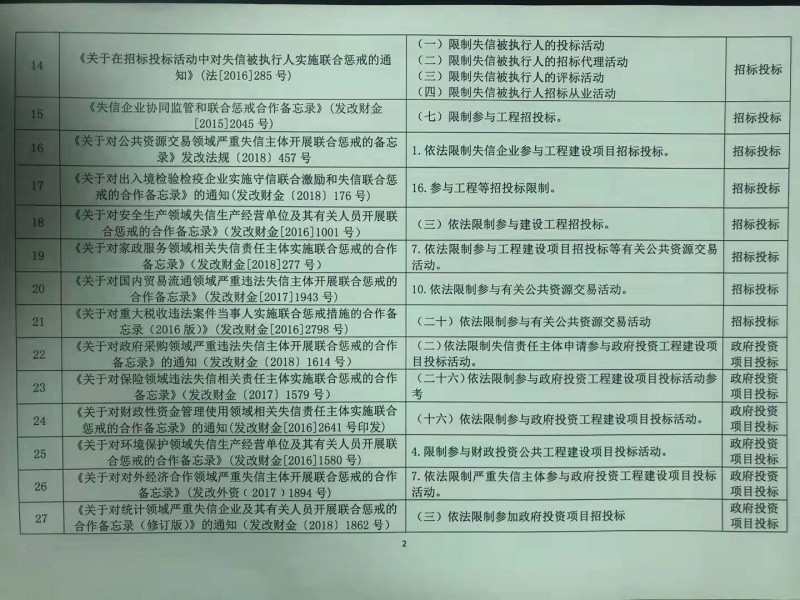 14
《关于在招标投标活动中对失信被执行人实施联合惩戒的通
知》(法[2016]285 号)
（一）限制失信被执行人的投标活动
（二）限制失信被执行人的招标代理活动
（三）限制失信被执行人的评标活动
（四）限制失信被执行人招标从业活动
招标投标
15
《失信企业协同监管和联合惩戒合作备忘录》(发改财金
[2015]2045 号)
（七）限制参与工程招投标。
招标投标
16
《关于对公共资源交易领域严重失信主体开展联合惩戒的备忘
录》发改法规（2018）457 号
1.依法限制失信企业参与工程建设项目招标投标。
招标投标
17
《关于对出入境检验检疫企业实施守信联合激励和失信联合惩
戒的合作备忘录》的通知(发改财金〔2018〕176 号)
16.参与工程等招投标限制。
招标投标
18
《关于对安全生产领域失信生产经营单位及其有关人员开展联
合惩戒的合作备忘录》（发改财金[2016]1001 号）
（三）依法限制参与建设工程招投标。
招标投标
19
《关于对家政服务领域相关失信责任主体实施联合惩戒的合作
备忘录》（发改财金[2018]277 号）
7.依法限制参与工程建设项目招投标等有关公共资源交易
活动。
招标投标
20
《关于对国内贸易流通领域严重违法失信主体开展联合惩戒的
合作备忘录》(发改财金[2017]1943 号)
10.依法限制参与有关公共资源交易活动。
招标投标
21
《关于对重大税收违法案件当事人实施联合惩戒措施的合作备
忘录（2016 版）》(发改财金[2016]2798 号)
（二十）依法限制参与有关公共资源交易活动
招标投标
22
《关于对政府采购领域严重违法失信主体开展联合惩戒的合作
备忘录》的通知（发改财金〔2018〕1614 号）
（二）依法限制失信责任主体申请参与政府投资工程建设项
目投标活动。
政府投资
项目投标
23
《关于对保险领域违法失信相关责任主体实施联合惩戒的合作
备忘录》（发改财金〔2017〕1579 号）
（二十六）依法限制参与政府投资工程建设项目投标活动参
考
政府投资
项目投标
24
《关于对财政性资金管理使用领域相关失信责任主体实施联合
惩戒的合作备忘录》的通知(发改财金[2016]2641 号印发)
（十六）依法限制参与政府投资工程建设项目投标活动。
政府投资
项目投标
25
《关于对环境保护领域失信生产经营单位及其有关人员开展联
合惩戒的合作备忘录》(发改财金[2016]1580 号)
4.限制参与财政投资公共工程建设项目投标活动。
政府投资
项目投标
26
《关于对对外经济合作领域严重失信主体开展联合惩戒的合作
备忘录》(发改外资〔2017〕1894 号)
7.依法限制严重失信主体参与政府投资工程建设项目投标
活动。
政府投资
项目投标
27
《关于对统计领域严重失信企业及其有关人员开展联合惩戒的
合作备忘录（修订版）》的通知（发改财金〔2018〕1862 号）
（三）依法限制参加政府投资项目招投标
政府投资
项目投标
2